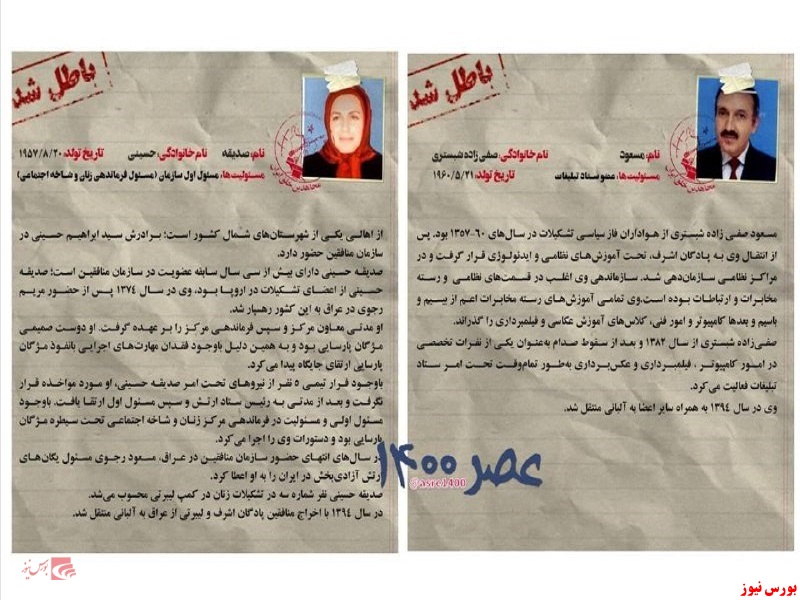 باطل شد
نام: مسعود نام خانوادگی: صفی زاده شبستری
مسئولیت‌ها: عضو ستاد تبلیغات تاریخ تولد: ۱۹۶۰/۵/۲۱
مسعود صفی زاده شبستری از هواداران فاز سیاسی تشکیلات در سال‌های ۶۰-۱۳۵۷ بود. پس
از انتقال وی به پادگان اشرف، تحت آموزش‌های نظامی و ایدئولوژی قرار گرفت و در
مراکز نظامی سازمان‌دهی شد. سازماندهی وی اغلب در قسمت‌های نظامی و رسته
مخابرات و ارتباطات بوده است.وی تمامی آموزش‌های رسته مخابرات اعم از بیسیم و
باسیم و بعدها کامپیوتر و امور فنی، کلاس‌های آموزش عکاسی و فیلمبرداری را گذراند.
صفی‌زاده شبستری از سال ۱۳۸۲ و بعد از سقوط صدام به‌عنوان یکی از نفرات تخصصی
در امور کامپیوتر ، فیلمبرداری و عکس‌برداری به‌طور تمام‌وقت تحت امر ستاد
تبلیغات فعالیت می‌کرد.
وی در سال ۱۳۹۴ به همراه سایر اعضا به آلبانی منتقل شد.
باطل شد
مجاهدین خلق ایران
نام: صدیقه نام خانوادگی: حسینی تاریخ تولد: ۱۹۵۷/۸/۲۰
مسئولیت‌ها: مسئول اول سازمان (مسئول فرماندهی زنان و شاخه اجتماعی)
از اهالی یکی از شهرستان‌های شمال کشور است؛ برادرش سید ابراهیم حسینی در
سازمان منافقین حضور دارد.
صدیقه حسینی دارای بیش از سی سال سابقه عضویت در سازمان منافقین است؛ صدیقه
حسینی از اعضای تشکیلات در اروپا بود، وی در سال ۱۳۷۴ پس از حضور مریم
رجوی در عراق به این کشور رهسپار شد.
او مدتی معاون مرکز و سپس فرماندهی مرکز را بر عهده گرفت. او دوست صمیمی
مژگان پارسایی بود و به همین دلیل باوجود فقدان مهارت‌های اجرایی بانفوذ مژگان
پارسایی ارتقای جایگاه پیدا می‌کرد.
باوجود فرار تیمی ۵ نفر از نیروهای تحت امر صدیقه حسینی، او مورد مواخذه قرار
نگرفت و بعد از مدتی به رئیس ستاد ارتش و سپس مسئول اول ارتقا یافت. باوجود
مسئول اولی و مسئولیت در فرماندهی مرکز زنان و شاخه اجتماعی تحت سیطره مژگان
پارسایی بود و دستورات وی را اجرا می‌کرد.
در سال‌های انتهای حضور سازمان منافقین در عراق، مسعود رجوی مسئول یگان‌های
ارتش آزادی‌بخش در ایران را به او اعطا کرد.
صدیقه حسینی نفر شماره سه در تشکیلات زنان در کمپ لیبرتی محسوب می‌شد.
در سال ۱۳۹۴ با اخراج منافقین پادگان اشرف و لیبرتی از عراق به آلبانی منتقل شد.
عصر ۱۴۰۰
@asre1400
بورس نیوز
بورس نیوز